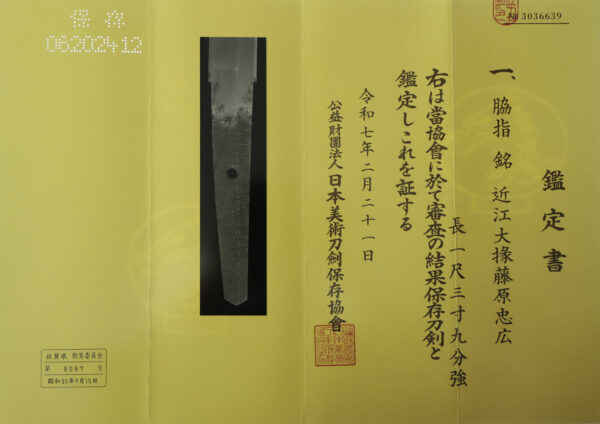 № 3036639
鑑定書
一、脇指 銘 近江大掾藤原忠広
長一尺三寸九分強
右は當協會に於て審査の結果保存刀剣と
鑑定しこれを証する
令和七年二月二十一日
公益財團法人 日本美術刀劍保存協會
保存
06202412
佐賀県 教育委員会
第 8087 号
昭和35年9月15日